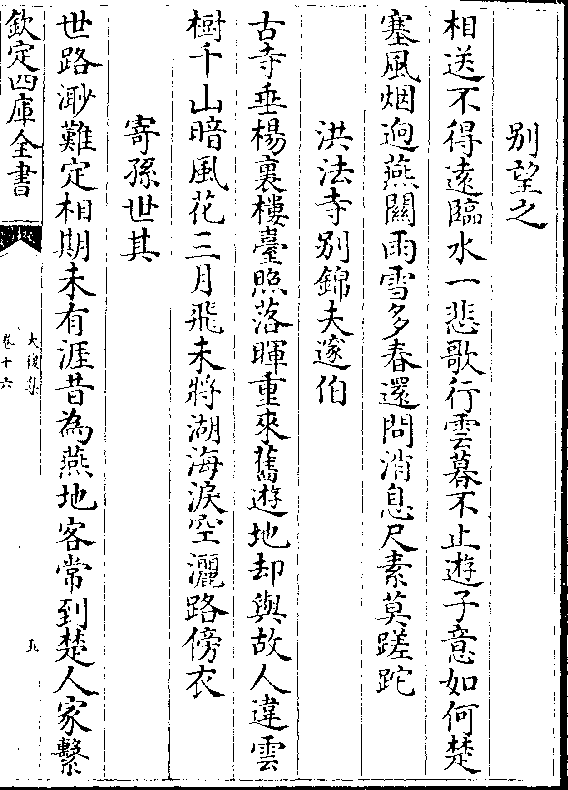 别望之
相送不得遠臨水一悲歌行雲暮不止遊子意如何楚
塞風烟逈燕關雨雪多春還問消息尺素莫蹉跎
洪法寺别錦夫邃伯
古寺垂楊裏樓臺照落暉重來舊遊地却與故人違雲
樹千山暗風花三月飛未將湖海淚空灑路傍衣
寄孫世其
世路渺難定相期未有涯昔為燕地客常到楚人家繫
欽定四庫全書
大復集
卷十六
五